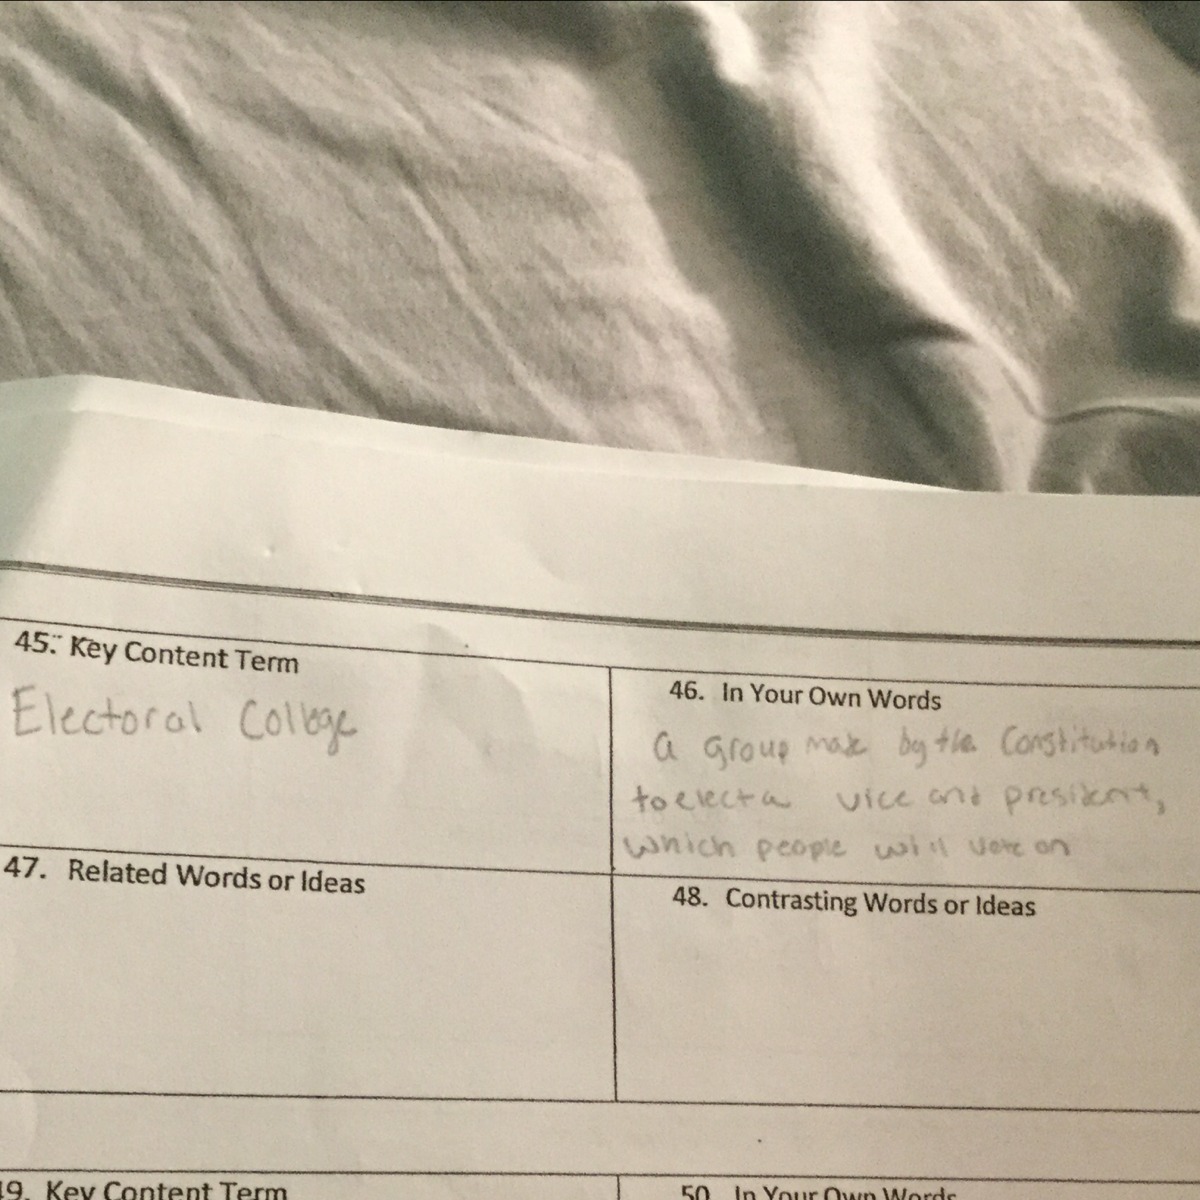 45. Key Content Term
Electoral College
46. In Your Own Words
a group made by the Constitution
to elect a vice and president,
which people will vote on
47. Related Words or Ideas
48. Contrasting Words or Ideas
49. Key Content Term
50. In Your Own Words